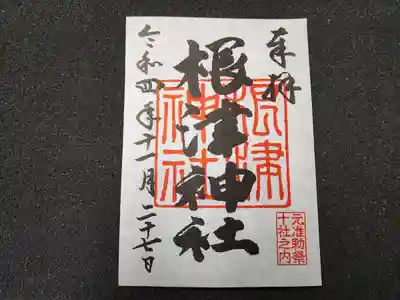 奉拝
根津神社
根津神社
元准勅祭
十社之内
令和四年十一月二十七日